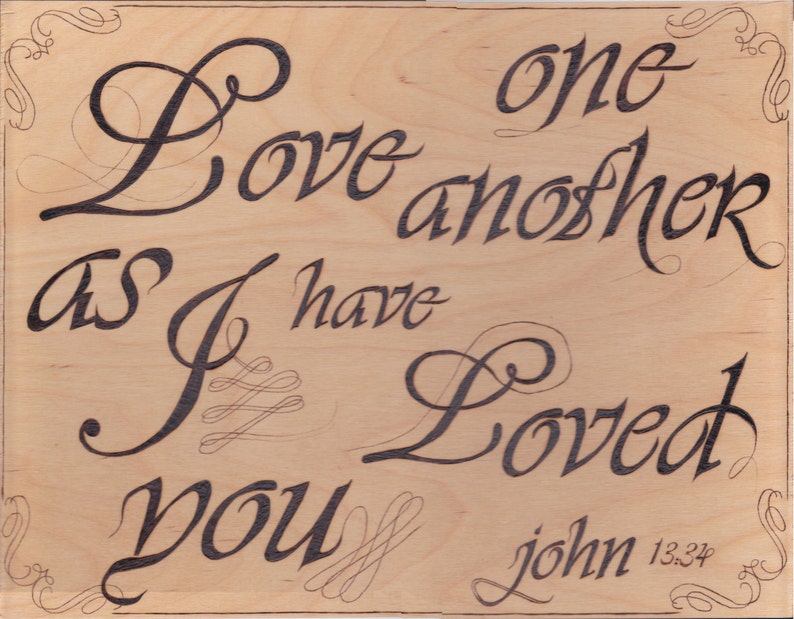 Love one
another
as I have
Loved
you
john 13:34